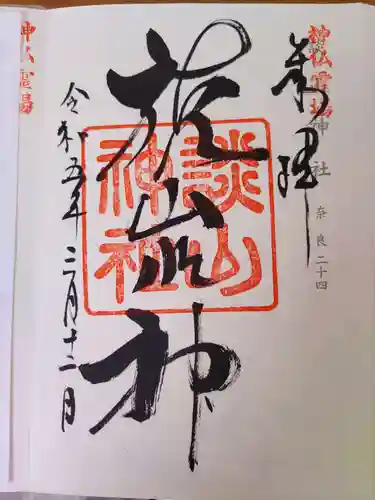 神仏霊場
奉拝
神社 奈良二十四
談山神社
令和五年三月十二日
神仏霊場